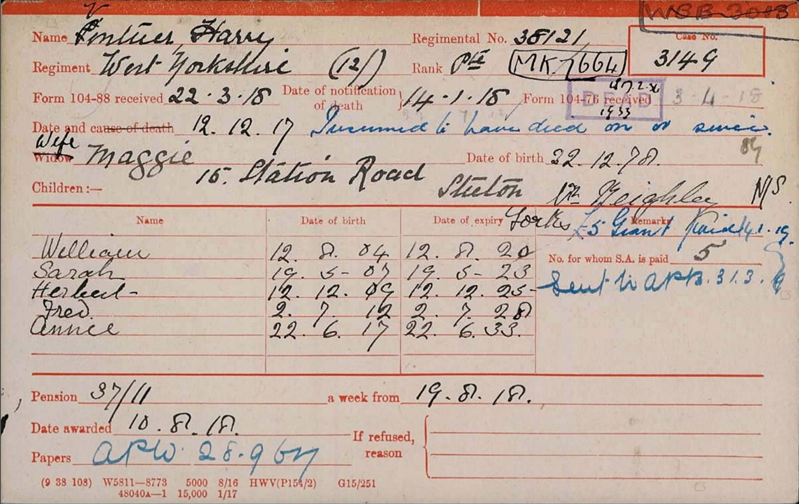 W.S.B. 3005
Name Ventuer, Harry Regimental No. 38121 Case No.
Regiment West Yorkshire (12) Rank Pte MK7664 3149
Form 104-88 received 22.3.18 Date of notification of death 14.1.18 Form 104-76 received 3-4-18
DEAD
1933
Date and cause of death 12.12.17 Presumed to have died on or since.
Wife
Widow Maggie Date of birth 22.12.78.
15. Station Road Steeton Keighley N/S.
Children:— Yorks £5 Grant Paid 14.1.19.
Name Date of birth Date of expiry Remarks
William 12.8.04 12.8.20
Sarah 19.5-07 19.5-23
Herbert- 12.12.09 12.12.25-
Fred. 2.7.12 2.7.28
Annie 22.6.17 22.6.33.
No. for whom S.A. is paid 5
Sent to APB. 31.3.
Pension 37/11 a week from 19.8.18.
Date awarded 10.8.18.
Papers 28.9 If refused, reason
(9 38 108) W5811—8773 5000 8/16 HWV(P154/2) G15/251
48040A—1 15,000 1/17